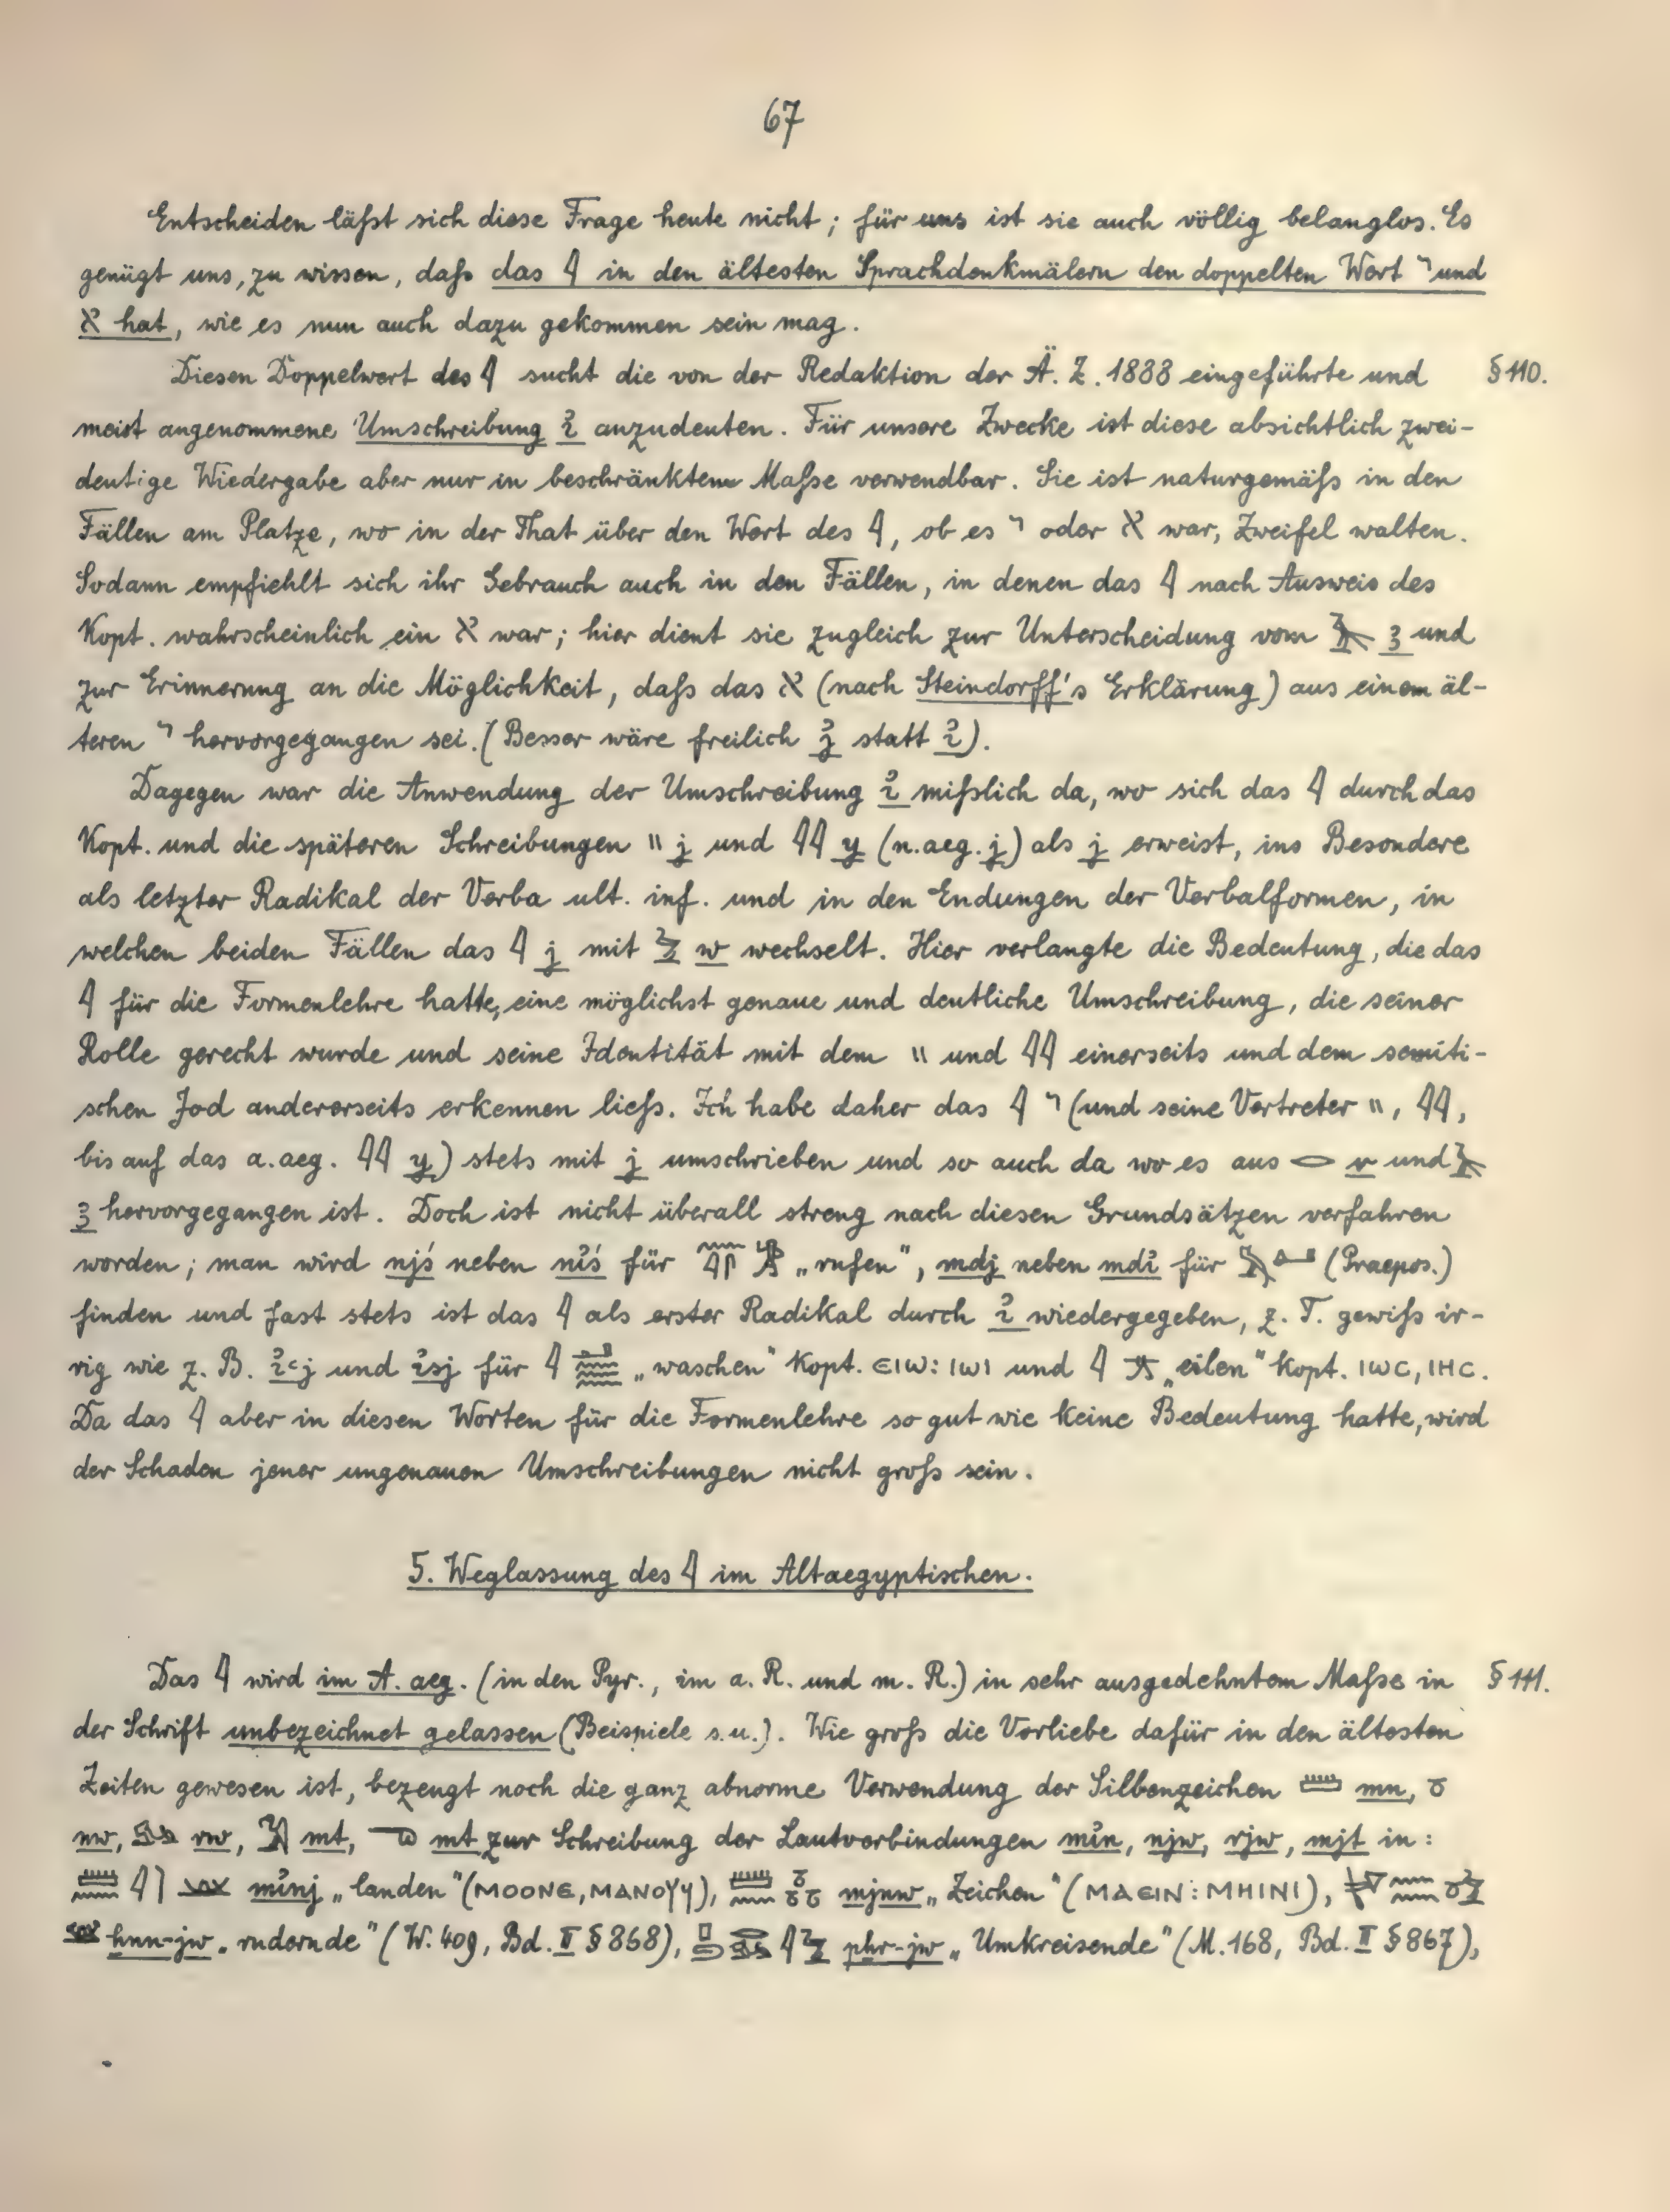 67
Entscheiden läßt sich diese Frage heute nicht; für uns ist sie auch völlig belanglos. Es
genügt uns, zu wissen, daß das 𓇋 in den ältesten Sprachdenkmälern den doppelten Wert י und
א hat, wie es nun auch dazu gekommen sein mag.
Diesen Doppelwert des 𓇋 sucht die von der Redaktion der Ä. Z. 1888 eingeführte und § 110.
meist angenommene Umschreibung ꞽ anzudeuten. Für unsere Zwecke ist diese absichtlich zwei-
deutige Wiedergabe aber nur in beschränktem Maße verwendbar. Sie ist naturgemäß in den
Fällen am Platze, wo in der That über den Wert des 𓇋, ob es י oder א war, Zweifel walten.
Sodann empfiehlt sich ihr Gebrauch auch in den Fällen, in denen das 𓇋 nach Ausweis des
Kopt. wahrscheinlich ein א war; hier dient sie zugleich zur Unterscheidung vom 𓄿 ꜣ und
zur Erinnerung an die Möglichkeit, daß das א (nach Steindorff's Erklärung) aus einem äl-
teren י hervorgegangen sei. (Besser wäre freilich j̓ statt ꞽ).
Dagegen war die Anwendung der Umschreibung ꞽ mißlich da, wo sich das 𓇋 durch das
Kopt. und die späteren Schreibungen 𓏭 j und 𓇋𓇋 y (n.aeg. j) als j erweist, ins Besondere
als letzter Radikal der Verba ult. inf. und in den Endungen der Verbalformen, in
welchen beiden Fällen das 𓇋 j mit 𓅱 w wechselt. Hier verlangte die Bedeutung, die das
𓇋 für die Formenlehre hatte, eine möglichst genaue und deutliche Umschreibung, die seiner
Rolle gerecht wurde und seine Identität mit dem 𓏭 und 𓇋𓇋 einerseits und dem semiti-
schen Jod andererseits erkennen ließ. Ich habe daher das 𓇋 י (und seine Vertreter 𓏭, 𓇋𓇋,
bis auf das a.aeg. 𓇋𓇋 y) stets mit j umschrieben und so auch da wo es aus 𓂋 r und 𓄿
ꜣ hervorgegangen ist. Doch ist nicht überall streng nach diesen Grundsätzen verfahren
worden; man wird njś neben nꞽś für 𓈖𓇋𓋴𓀁 „rufen", mdj neben mdꞽ für 𓅓𓂞 (Praepos.)
finden und fast stets ist das 𓇋 als erster Radikal durch ꞽ wiedergegeben, z. T. gewiß ir-
rig wie z. B. ꞽꜥj und ꞽsj für 𓇋𓂝𓈗 „waschen" Kopt. ⲉⲓⲱ: ⲓⲱⲓ und 𓇋 „eilen" Kopt. ⲓⲱⲥ, ⲓⲏⲥ.
Da das 𓇋 aber in diesen Worten für die Formenlehre so gut wie keine Bedeutung hatte, wird
der Schaden jener ungenauen Umschreibungen nicht groß sein.
5. Weglassung des 𓇋 im Altaegyptischen.
Das 𓇋 wird im A. aeg. (in den Pyr., im a. R. und m. R.) in sehr ausgedehntem Maße in § 111.
der Schrift unbezeichnet gelassen (Beispiele s.u.). Wie groß die Vorliebe dafür in den ältesten
Zeiten gewesen ist, bezeugt noch die ganz abnorme Verwendung der Silbenzeichen 𓏠 mn, 𓏌
nw, 𓃭 rw, 𓅐 mt, mt zur Schreibung der Lautverbindungen mꞽn, njw, rjw, mjt in:
𓏠𓈖𓇋 mꞽnj „landen" (ⲙⲟⲟⲛⲉ, ⲙⲁⲛⲟⲩⲩ), 𓏠𓈖𓏌𓏌𓏌 mjnw „Zeichen" (ⲙⲁⲉⲓⲛ: ⲙⲏⲓⲛⲓ), 𓈖𓈖𓏌𓅱
hnn-jw „rudernde" (W. 409, Bd. II § 868), 𓊪𓃭𓇋𓅱 phr-jw „Umkreisende" (M. 168, Bd. II § 867),